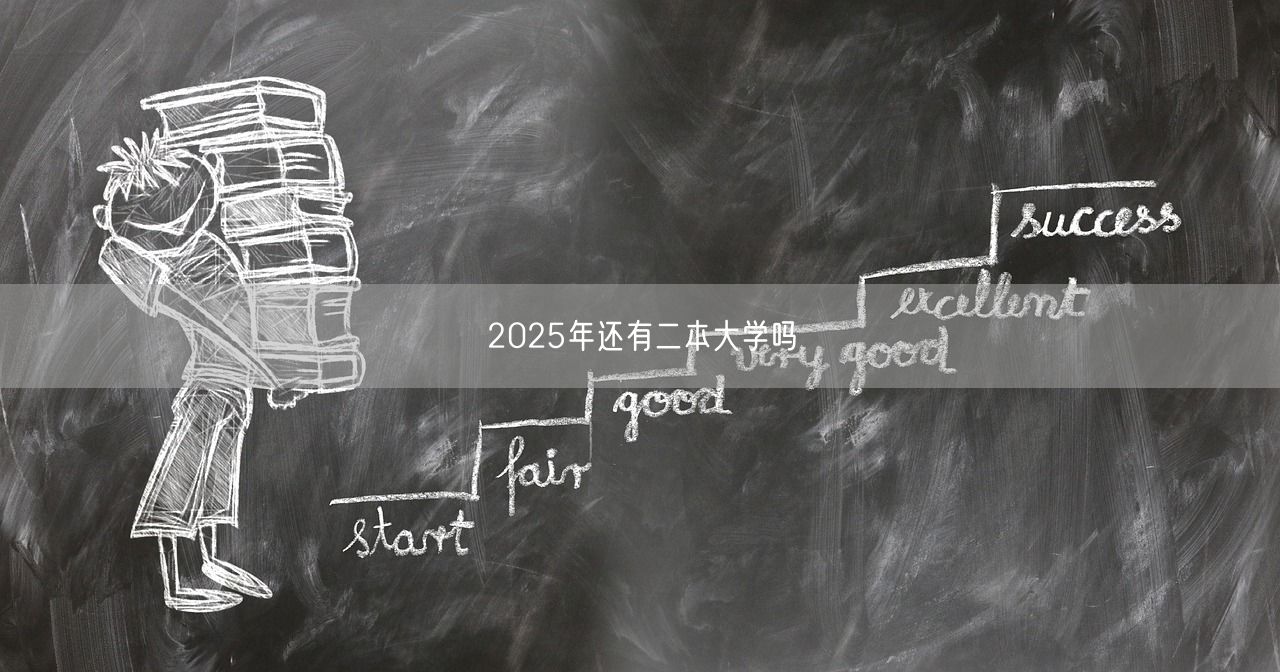 success
excellent
2025年还有二本大学吗
very good
good
fair
start